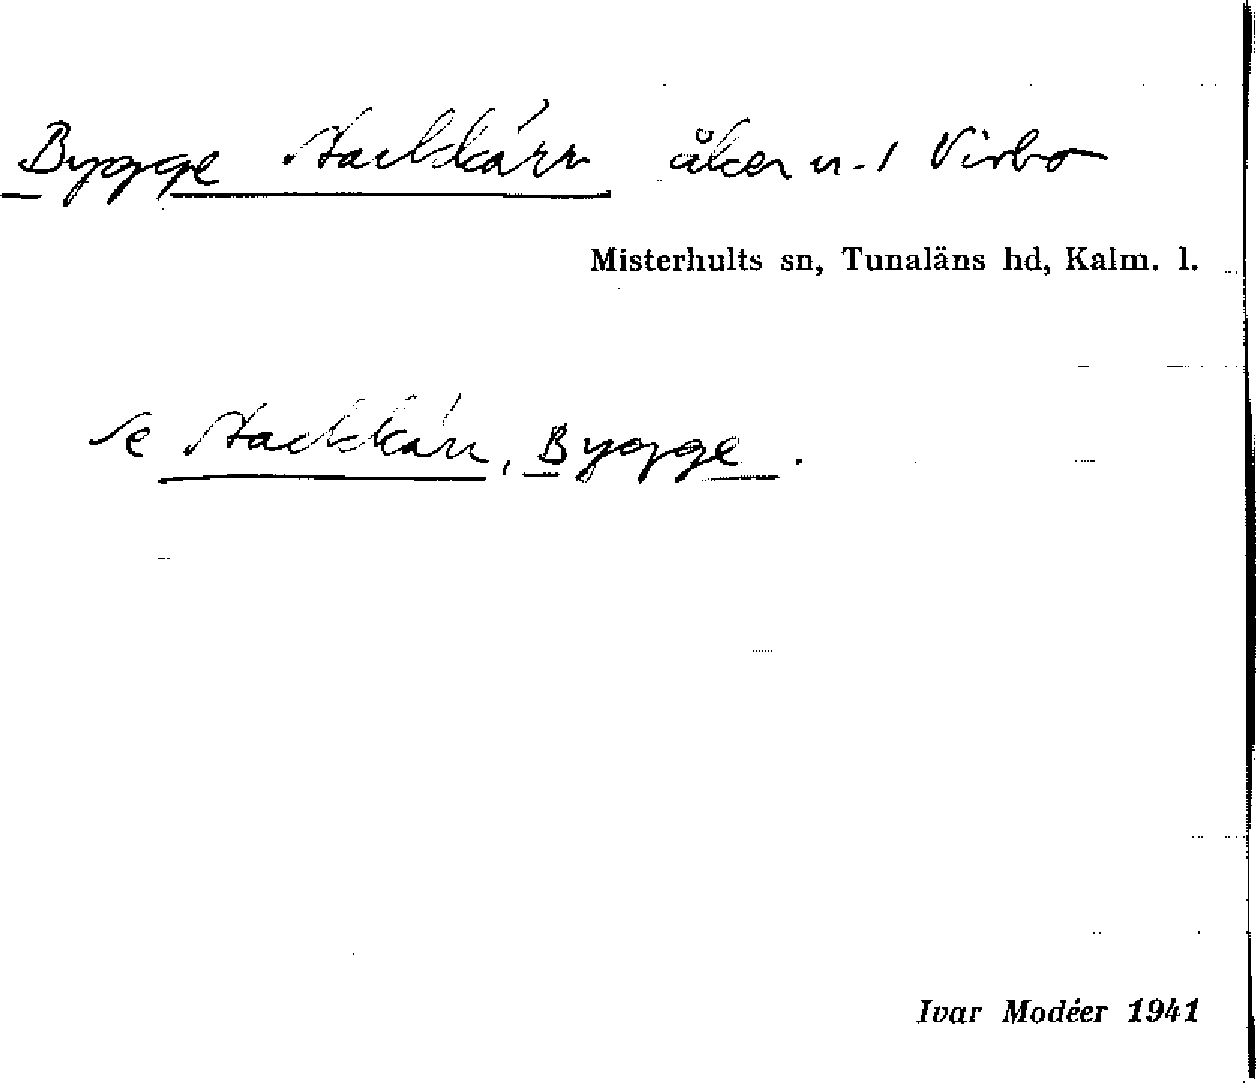 Bygge Stackkärr åker u. 1 Virbo
Misterhults sn, Tunaläns hd, Kalm. l.
Se Stackkärr, Bygge.
Ivar Modéer 1941